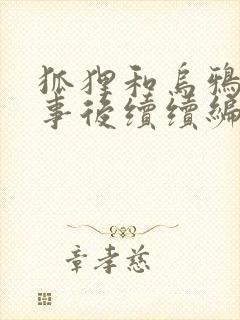 狐狸和烏鴉
事後續續編
章孝慈